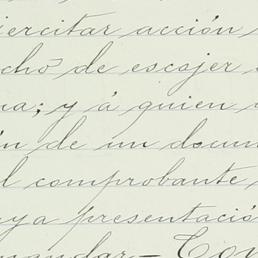 ejercitar acción
cho de escojer
a; y á quien
ón de un docum
l comprobante
ya presentació
mandar — Con